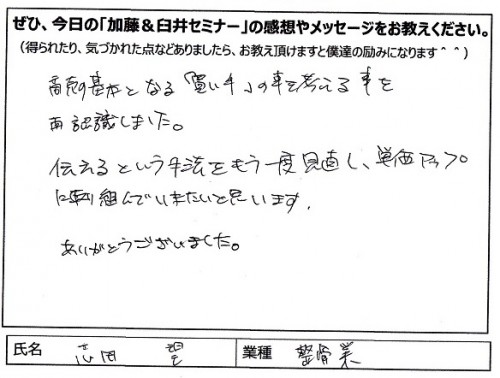 ぜひ、今日の「加藤＆臼井セミナー」の感想やメッセージをお教えください。
（得られたり、気づかれた点などありましたら、お教え頂けますと僕達の励みになります＾＾）
商売の基本となる「買い手」の事を考える事を
再認識しました。
伝えるという手法をもう一度見直し、単価アップへ
取り組んでいきたいと思います。
ありがとうございました。
氏名 志田
業種 整骨業